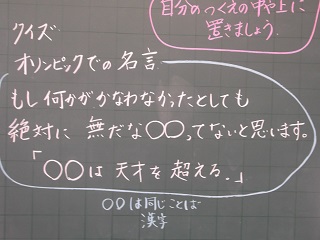 自分のつくえの中や上に
置きましょう.
クイズ
オリンピックでの名言
もし何かがかなわなかったとしても
絶対に 無だな〇〇ってないと思います。
「〇〇は 天才を 超える.」
〇〇は同じことば
漢字